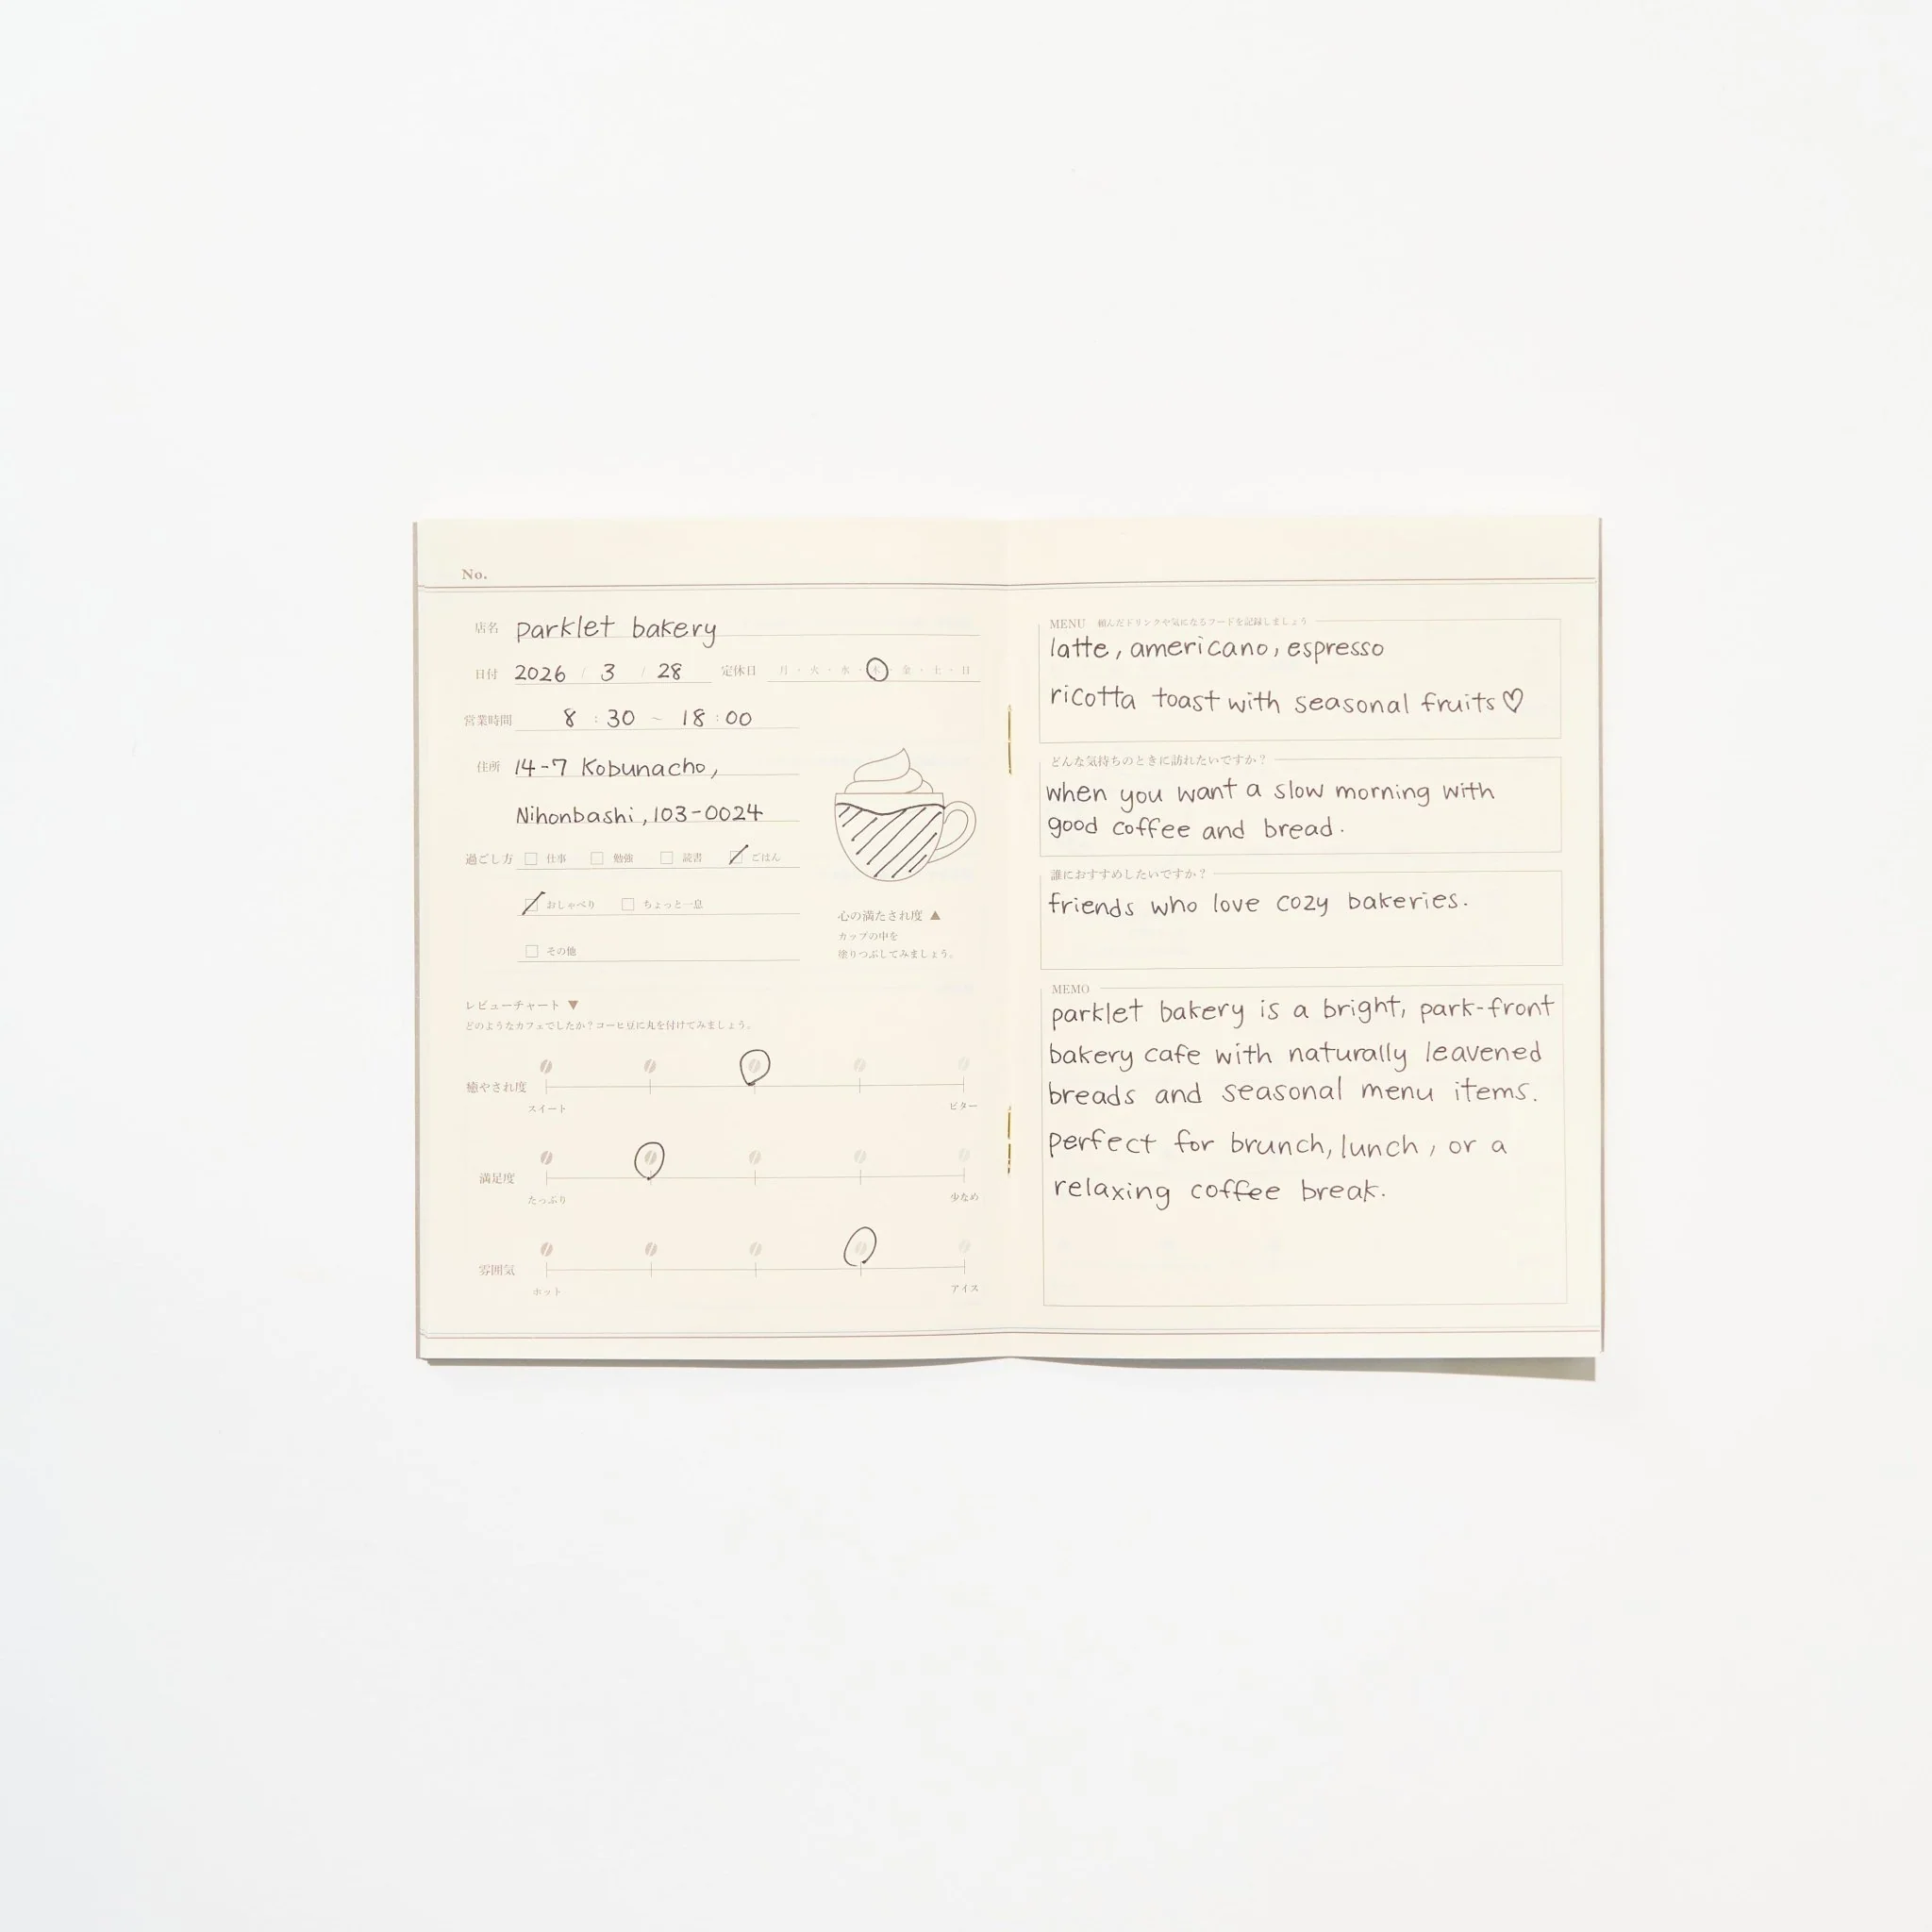 No.
店名 parklet bakery
日付 2026 / 3 / 28 定休日 月・火・水・木・金・土・日
営業時間 8:30 ~ 18:00
住所 14-7 Kobunacho,
Nihonbashi, 103-0024
過ごし方 仕事 勉強 読書 ごはん
おしゃべり ちょっと一息
その他
心の満たされ度 ▲
カップの中を
塗りつぶしてみましょう。
レビューチャート ▼
どのようなカフェでしたか?コーヒー豆に丸を付けてみましょう。
癒やされ度
スイート ビター
満足度
たっぷり 少なめ
雰囲気
ホット アイス
MENU 頼んだドリンクや気になるフードを記録しましょう
latte, americano, espresso
ricotta toast with seasonal fruits♡
どんな気持ちのときに訪れたいですか?
when you want a slow morning with
good coffee and bread.
誰におすすめしたいですか?
friends who love cozy bakeries.
MEMO
parklet bakery is a bright, park-front
bakery cafe with naturally leavened
breads and seasonal menu items.
perfect for brunch, lunch, or a
relaxing coffee break.